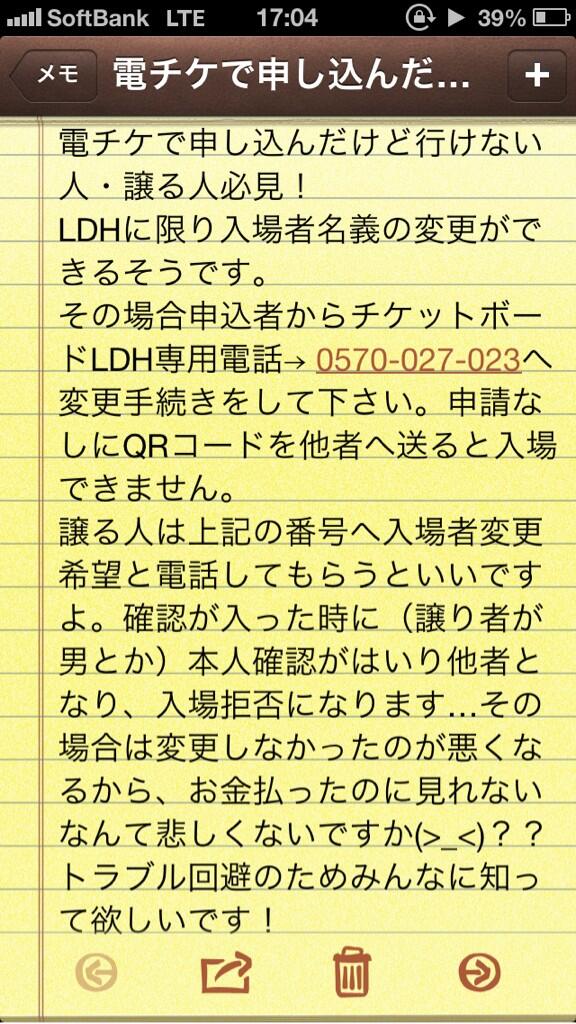 SoftBank LTE 17:04 39%
メモ 電チケで申し込んだ... +
電チケで申し込んだけど行けない
人・譲る人必見！
LDHに限り入場者名義の変更がで
きるそうです。
その場合申込者からチケットボー
ドLDH専用電話→ 0570-027-023へ
変更手続きをして下さい。申請な
しにQRコードを他者へ送ると入場
できません。
譲る人は上記の番号へ入場者変更
希望と電話してもらうといいです
よ。確認が入った時に（譲り者が
男とか）本人確認がはいり他者と
なり、入場拒否になります…その
場合は変更しなかったのが悪くな
るから、お金払ったのに見れない
なんて悲しくないですか(>_<)？？
トラブル回避のためみんなに知っ
て欲しいです！